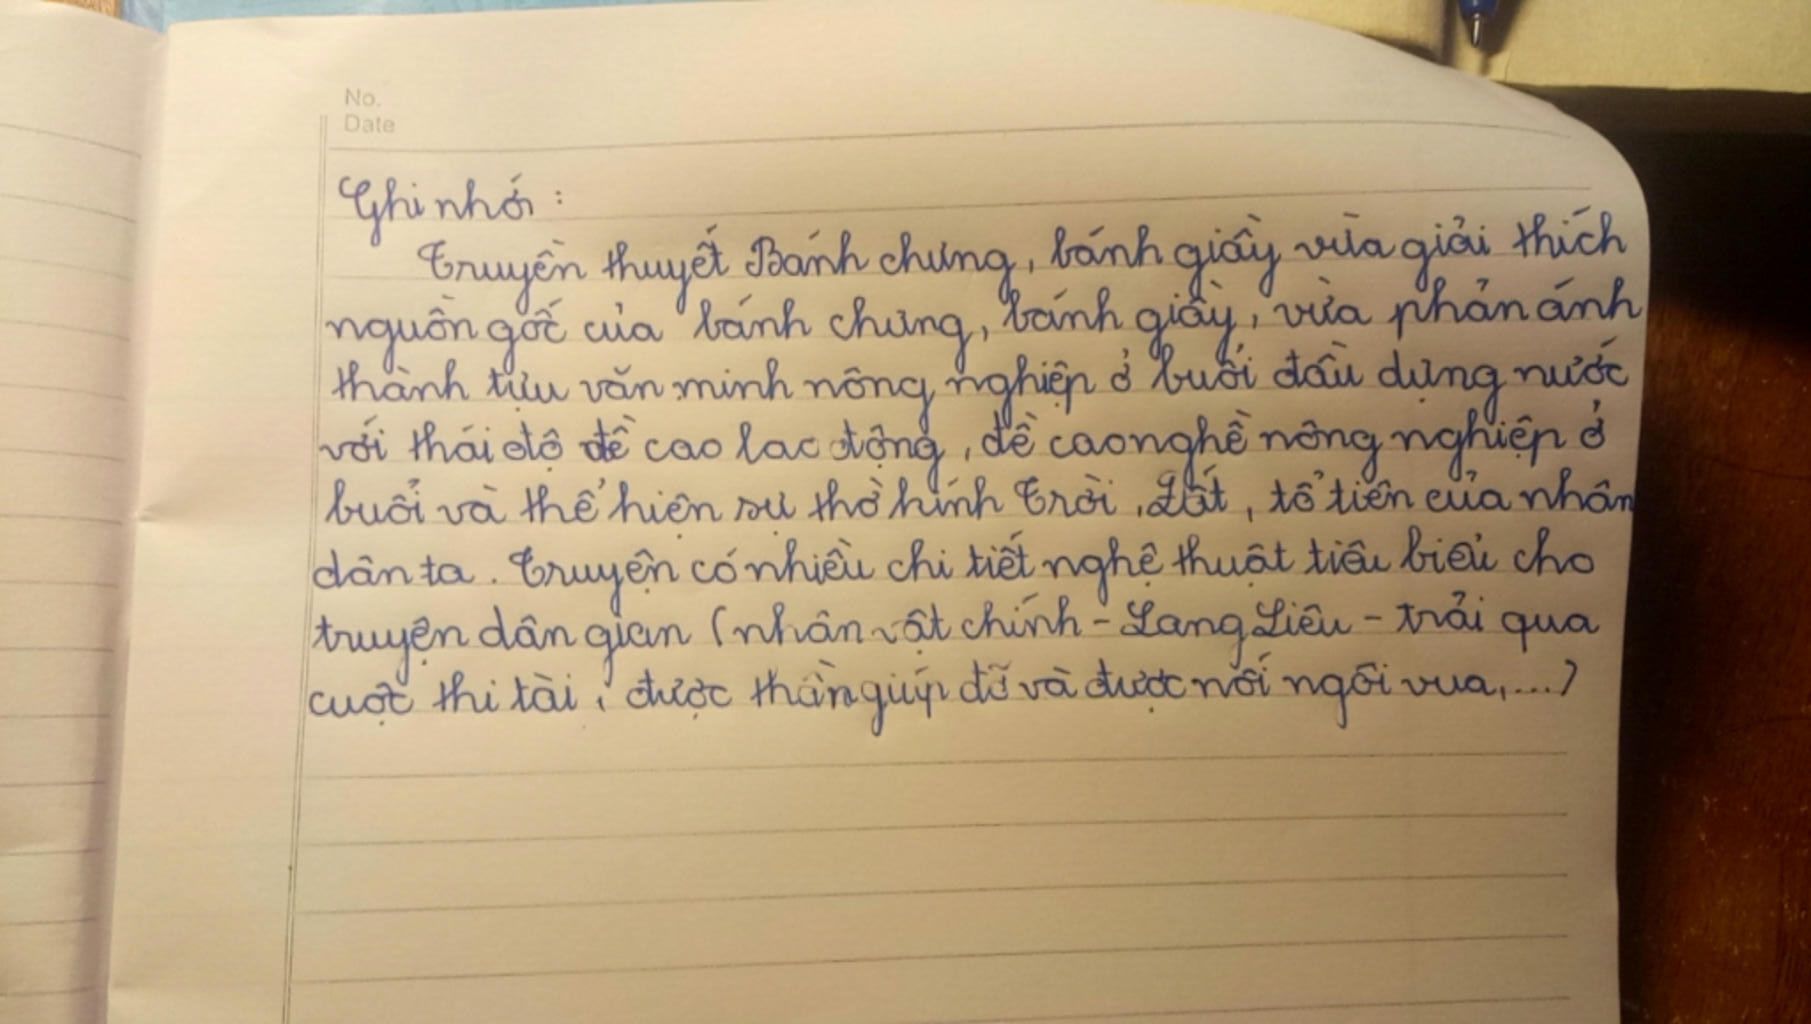 No.
Date
Ghi nhớ :
Truyền thuyết Bánh chưng, bánh giầy vừa giải thích
nguồn gốc của bánh chưng, bánh giầy, vừa phản ánh
thành tựu văn minh nông nghiệp ở buổi đầu dựng nước
với thái độ đề cao lao động, đề cao nghề nông nghiệp ở
buổi và thể hiện sự thờ kính Trời, Đất, tổ tiên của nhân
dân ta. Truyện có nhiều chi tiết nghệ thuật tiêu biểu cho
truyện dân gian (nhân vật chính - Lang Liêu - trải qua
cuộc thi tài, được thần giúp đỡ và được nối ngôi vua,...)